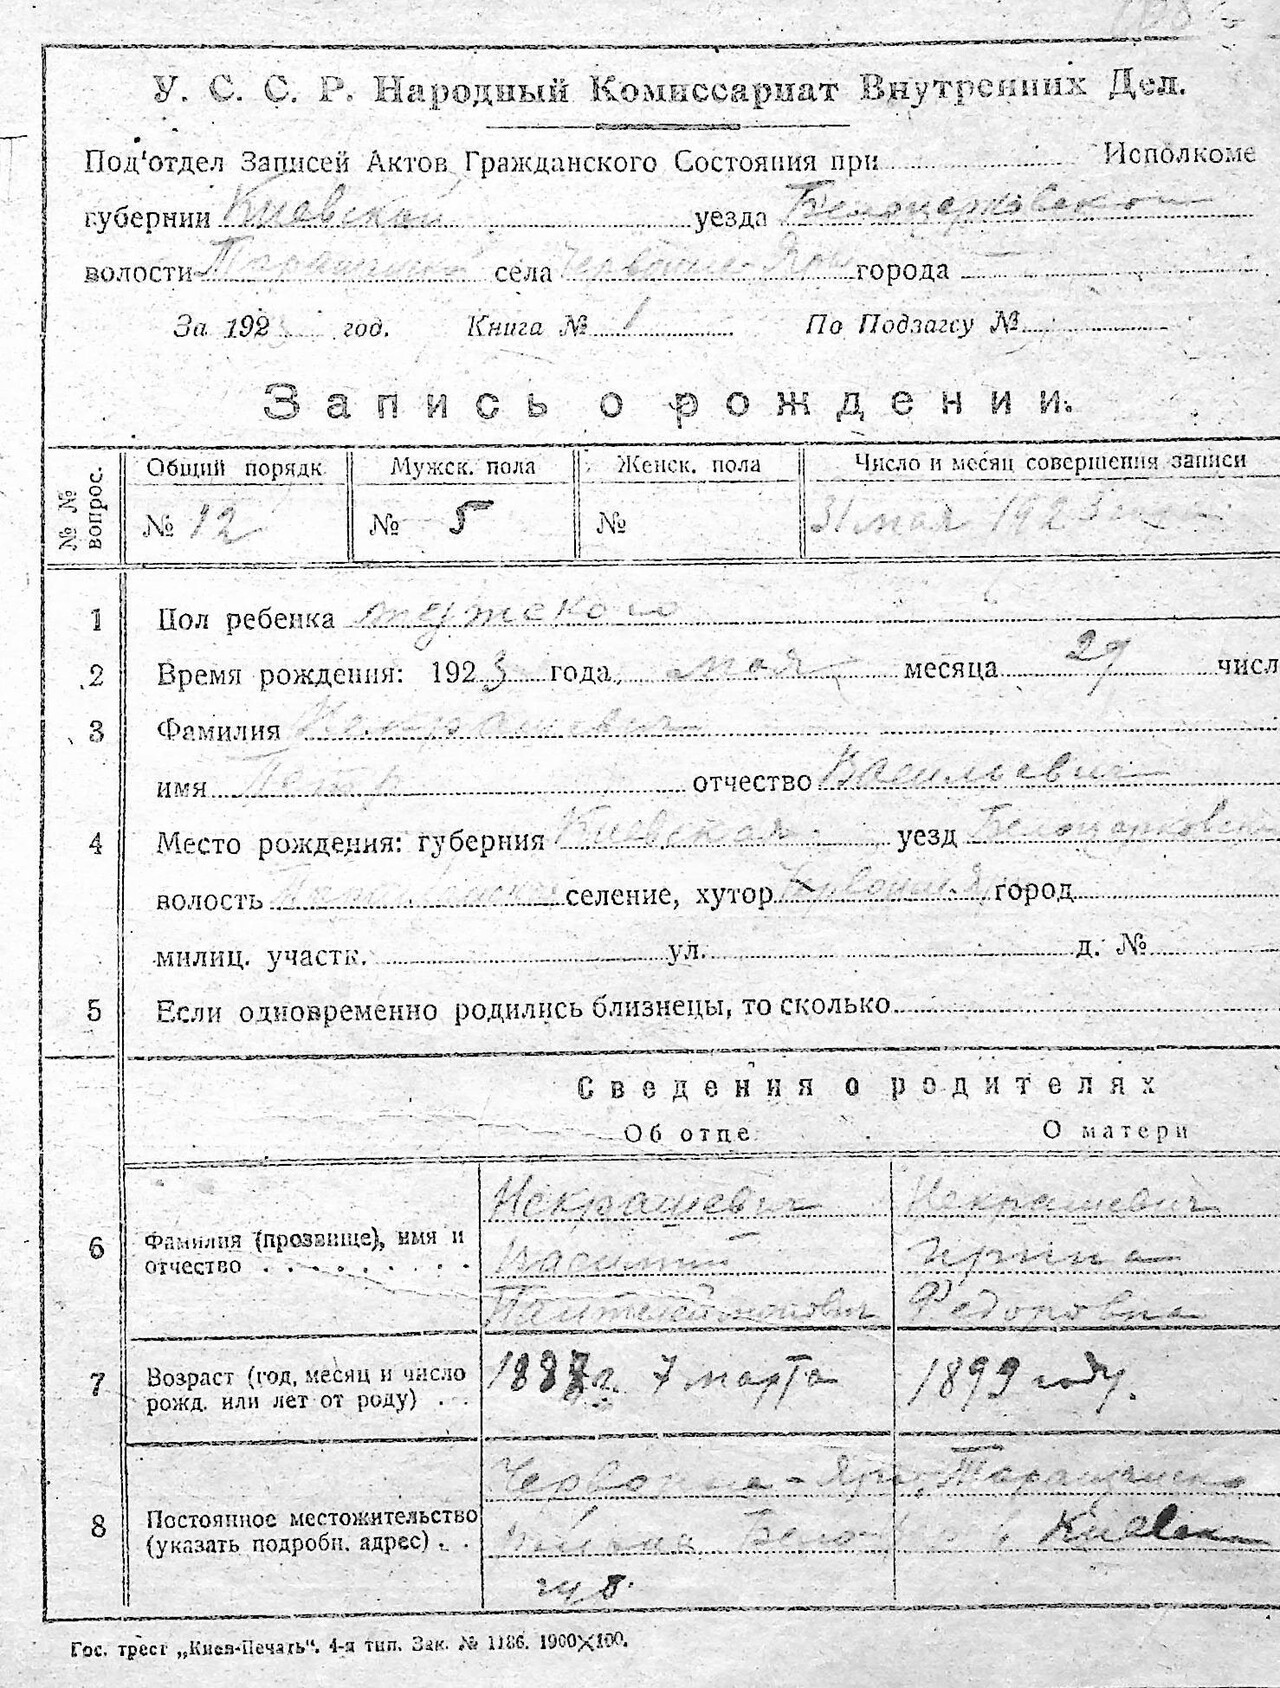 У. С. С. Р. Народный Комиссариат Внутренних Дел.
Под'отдел Записей Актов Гражданского Состояния при Исполкоме
губернии Киевской уезда Белоцерковской
волости села города
За 1923 год. Книга № 1 По Подзагсу №
Запись о рождении.
№ № вопрос. Общий порядк Мужск. пола Женск. пола Число и месяц совершения записи
№ 12 № 5 № 31 мая 1923
1 Пол ребенка мужского
2 Время рождения: 1923 года мая месяца 29 числ
3 Фамилия Некрашевич
имя Петр отчество Васильевич
4 Место рождения: губерния Киевская уезд
волость селение, хутор город
милиц. участк. ул. д. №
5 Если одновременно родились близнецы, то сколько
Сведения о родителях
Об отце О матери
6 Фамилия (прозвище), имя и отчество
Некрашевич Некрашевич
Василий Ирина
Пантелеймонович Федоровна
7 Возраст (год, месяц и число рожд. или лет от роду)
7 марта 1899 году.
8 Постоянное местожительство (указать подробн. адрес)
губ.
Гос. трест „Киев-Печать“. 4-я тип. Зак. № 1186. 1900×100.